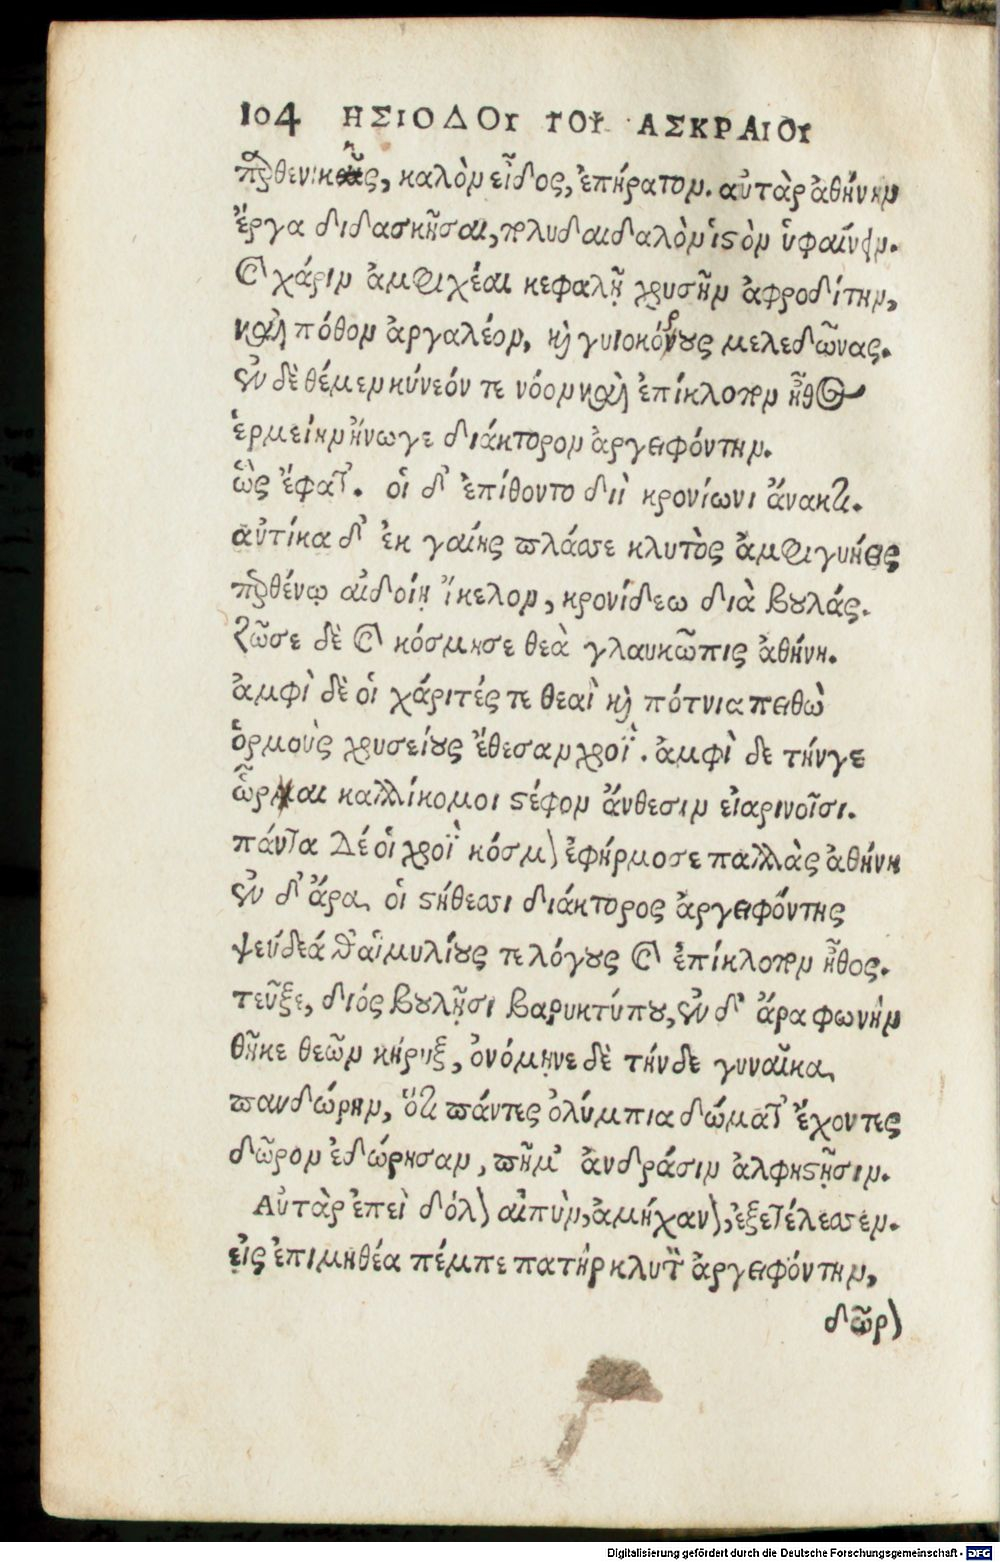 104 ΗΣΙΟΔΟΥ ΤΟΥ ΑΣΚΡΑΙΟΥ
παρθενικῆς, καλὸν εἶδος, ἐπήρατον. αὐτὰρ ἀθήνην
ἔργα διδασκῆσαι, πολυδαίδαλον ἱστὸν ὑφαίνειν.
καὶ χάριν ἀμφιχέαι κεφαλῇ χρυσῆν ἀφροδίτην,
καὶ πόθον ἀργαλέον, καὶ γυιοκόρους μελεδῶνας.
ἐν δὲ θέμεν κύνεόν τε νόον καὶ ἐπίκλοπον ἦθος
ἑρμείην ἤνωγε διάκτορον ἀργειφόντην.
ὣς ἔφατ'. οἱ δ' ἐπίθοντο διὶ κρονίωνι ἄνακτι.
αὐτίκα δ' ἐκ γαίης πλάσσε κλυτὸς ἀμφιγυήεις
παρθένῳ αἰδοίῃ ἴκελον, κρονίδεω διὰ βουλάς.
ζῶσε δὲ καὶ κόσμησε θεὰ γλαυκῶπις ἀθήνη.
ἀμφὶ δὲ οἱ χάριτές τε θεαὶ καὶ πότνια πειθὼ
ὁρμοὺς χρυσείους ἔθεσαν χροῒ. ἀμφὶ δε τήνγε
ὧραι καλλίκομοι στέφον ἄνθεσιν εἰαρινοῖσι.
πάντα Δέ οἱ χροῒ κόσμον ἐφήρμοσε παλλὰς ἀθήνη
ἐν δ' ἄρα οἱ στήθεσσι διάκτορος ἀργειφόντης
ψεύδεά θ' αἱμυλίους τε λόγους καὶ ἐπίκλοπον ἦθος.
τεῦξε, διός βουλῇσι βαρυκτύπου, ἐν δ' ἄρα φωνὴν
θῆκε θεῶν κήρυξ, ὀνόμῃνε δὲ τήνδε γυναῖκα
πανδώρην, ὅτι πάντες ὀλύμπια δώματ' ἔχοντες
δῶρον ἐδώρησαν, πῆμ' ἀνδράσιν ἀλφηστῇσιν.
Αὐτὰρ ἐπεὶ δόλον αἰπὺν, ἀμήχανον, ἐξετέλεσσεν.
εἰς ἐπιμηθέα πέμπε πατὴρ κλυτὸν ἀργειφόντην,
δῶρον